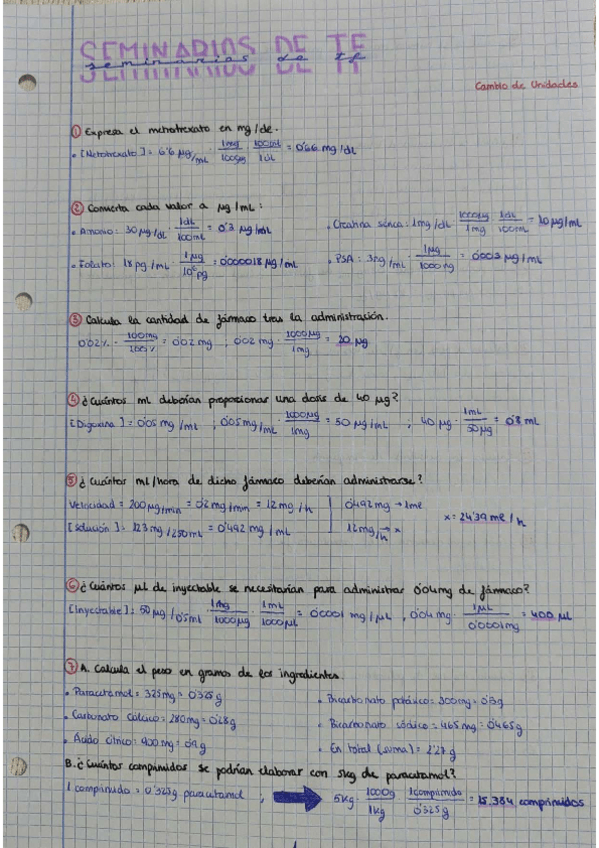 SEMINARIOS DE TF
seminarios de tf
Cambio de Unidades
① Expresa el metotrexato en mg/dL.
• [Metotrexato] = 6'6 µg/mL · 1mg/1000µg · 100mL/1dL = 0'66 mg/dL
② Convierta cada valor a µg/mL:
• Amonio: 30 µg/dL · 1dL/100mL = 0'3 µg/mL
• Creatina sérica: 1mg/dL · 1000µg/1mg · 1dL/100mL = 10 µg/mL
• Folato: 18 pg/mL · 1µg/10⁶pg = 0'000018 µg/mL
• PSA: 3ng/mL · 1µg/1000ng = 0'003 µg/mL
③ Calcula la cantidad de fármaco tras la administración.
0'02% · 100mg/100% = 0'02 mg ; 0'02 mg · 1000µg/1mg = 20 µg
④ ¿Cuántos mL deberían proporcionar una dosis de 40 µg?
[Digoxina] = 0'05 mg/mL , 0'05 mg/mL · 1000µg/1mg = 50 µg/mL ; 40 µg · 1mL/50µg = 0'8 mL
⑤ ¿Cuántos ml/hora de dicho fármaco deberían administrarse?
Velocidad = 200µg/min = 0'2 mg/min = 12 mg/h
0'492mg → 1ml
[solución] = 123 mg/250mL = 0'492 mg/mL
12mg/h → x
x = 24'39 ml/h
⑥ ¿Cuántos µL de inyectable se necesitarían para administrar 0'04mg de fármaco?
[Inyectable] = 50 µg/0'5mL · 1mg/1000µg · 1mL/1000µL = 0'0001 mg/µL , 0'04 mg · 1µL/0'0001mg = 400 µL
⑦ A. Calcula el peso en gramos de los ingredientes.
• Paracetamol = 325mg = 0'325g
• Bicarbonato potásico = 300mg = 0'3g
• Carbonato cálcico = 280mg = 0'28g
• Bicarbonato sódico = 465mg = 0'465g
• Ácido cítrico = 900mg = 0'9g
• En total (suma) = 2'27g
B. ¿Cuántos comprimidos se podrían elaborar con 5kg de paracetamol?
1 comprimido = 0'325g paracetamol ; 5kg · 1000g/1kg · 1comprimido/0'325g = 15.384 comprimidos